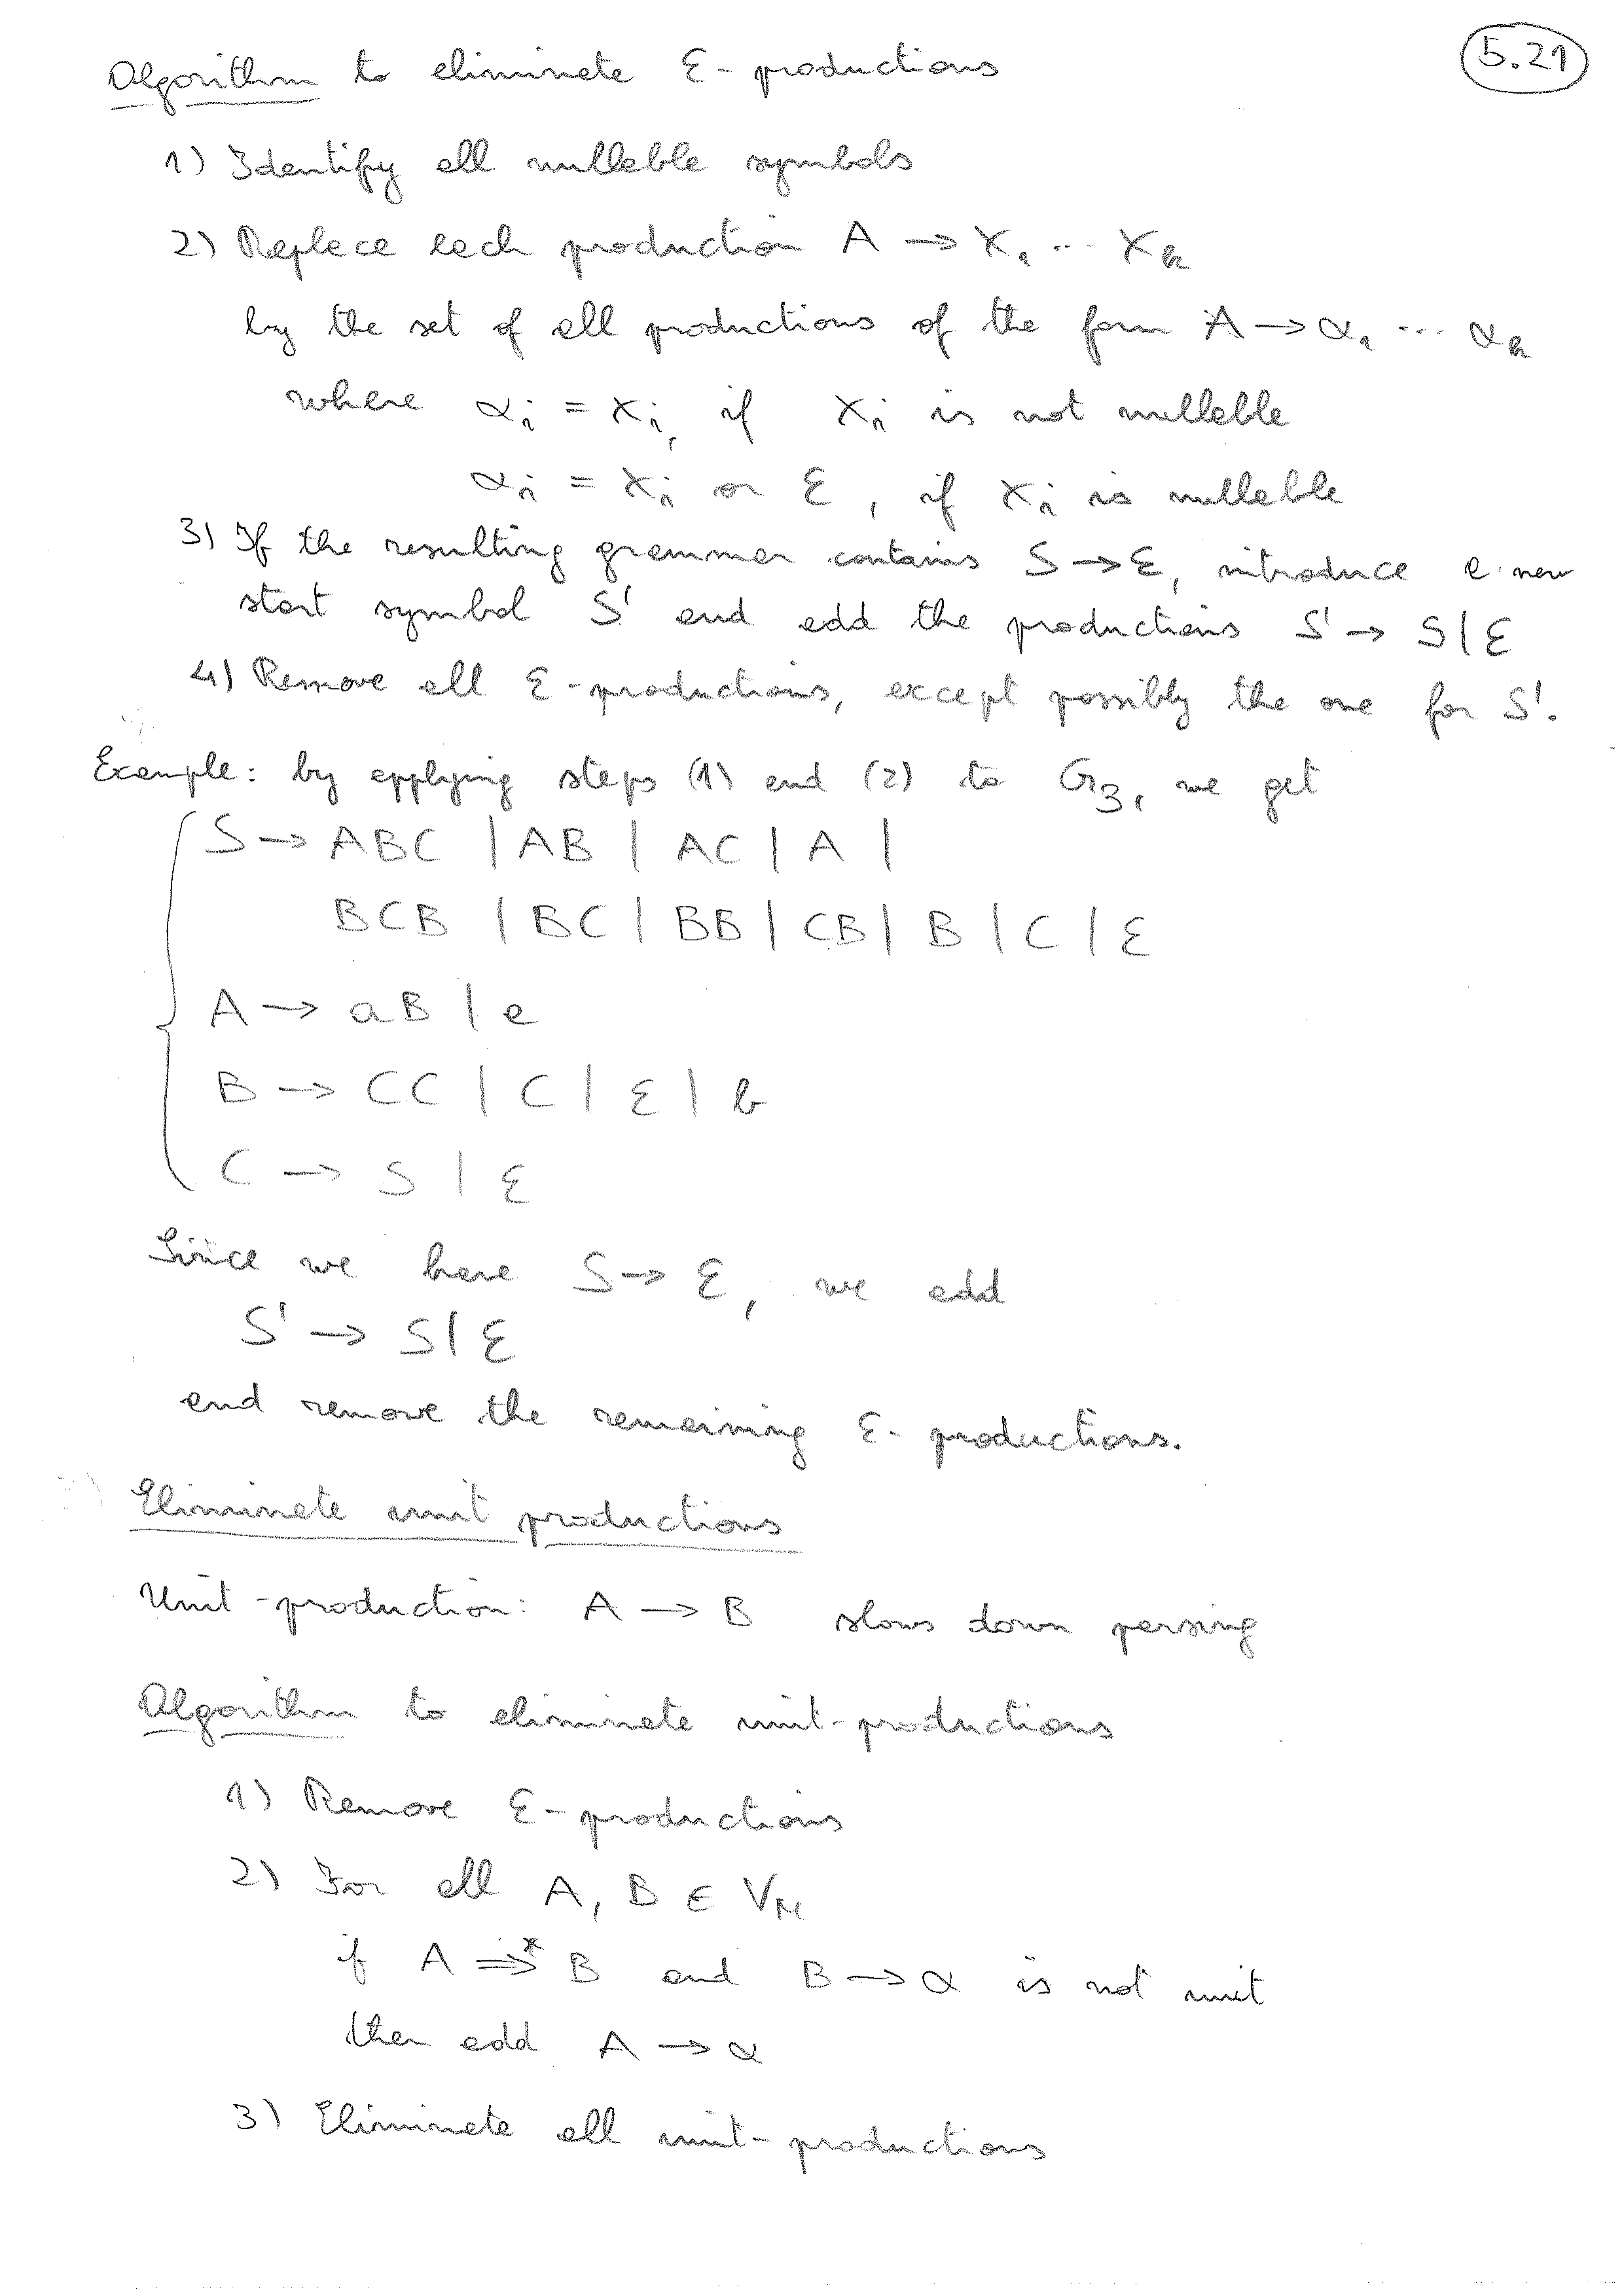 5.21
Algorithm to eliminate ε-productions
1) Identify all nullable symbols
2) Replace each production A → X₁ ... Xₖ
by the set of all productions of the form A → α₁ ... αₖ
where αᵢ = Xᵢ, if Xᵢ is not nullable
αᵢ = Xᵢ or ε, if Xᵢ is nullable
3) If the resulting grammar contains S → ε, introduce a new
start symbol S' and add the productions S' → S | ε
4) Remove all ε-productions, except possibly the one for S'.
Example: by applying steps (1) and (2) to G₃, we get
S → ABC | AB | AC | A |
BCB | BC | BB | CB | B | C | ε
A → aB | a
B → CC | C | ε | b
C → S | ε
Since we have S → ε, we add
S' → S | ε
and remove the remaining ε-productions.
Eliminate unit productions
Unit-production: A → B slows down parsing
Algorithm to eliminate unit-productions
1) Remove ε-productions
2) For all A, B ∈ V_N
if A ⇒* B and B → α is not unit
then add A → α
3) Eliminate all unit-productions